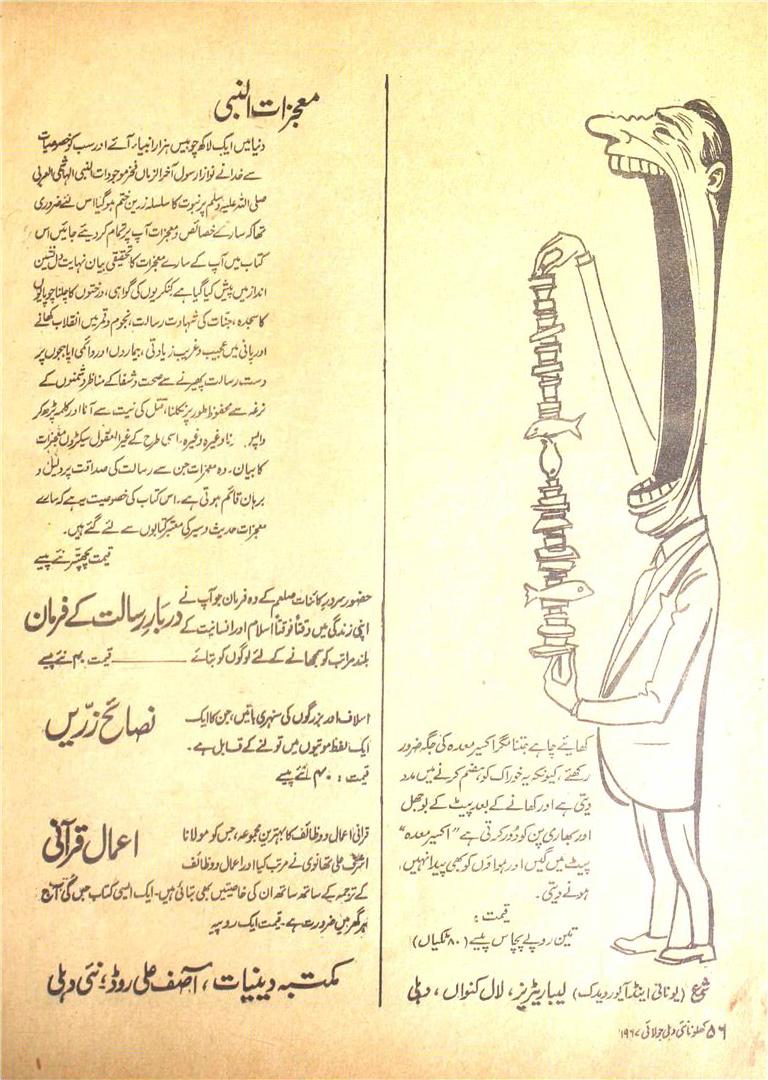 معجزات النبی
دنیا میں ایک لاکھ چوبیس ہزار انبیاء آئے اور سب کو خصوصیات
سے خدا نے نوازا رسول آخر الزماں فخر موجودات النبی الہاشمی العربی
صلی اللہ علیہ وسلم پر نبوت کا سلسلہ زریں ختم ہو گیا اس لئے ضروری
تھا کہ سارے خصائص و معجزات آپ پر تمام کر دیئے جائیں اس
کتاب میں آپ کے سارے معجزات کا تحقیقی بیان نہایت دل نشین
انداز میں پیش کیا گیا ہے کنکریوں کی گواہی، درختوں کا چلنا چوپایوں
کا سجدہ، جنات کی شہادت رسالت، نجوم و قمر میں انقلاب کھانے
اور پانی میں عجیب و غریب زیادتی، بیماروں اور دائمی اپاہجوں پر
دست رسالت پھیرنے سے صحت و شفا کے مناظر دشمنوں کے
نرغہ سے محفوظ طور پر نکلنا، قتل کی نیت سے آنا اور کلمہ پڑھ کر
واپس وغیرہ وغیرہ۔ اسی طرح کے غیر المنقول سیکڑوں معجزات
کا بیان۔ وہ معجزات جن سے رسالت کی صداقت پر دلیل و
برہان قائم ہوتی ہے۔ اس کتاب کی خصوصیت یہ ہے کہ سارے
معجزات حدیث و سیر کی معتبر کتابوں سے لئے گئے ہیں۔
قیمت پچھتر نئے پیسے
دربارِ رسالت کے فرمان
حضور سرور کائنات صلعم کے وہ فرمان جو آپ نے
اپنی زندگی میں وقتاً فوقتاً اسلام اور انسانیت کے
بلند مراتب کو سمجھانے کے لئے لوگوں کو بتائے ــــــ قیمت ۴۰ نئے پیسے
نصائح زرّیں
اسلاف اور بزرگوں کی سنہری باتیں، جن کا ایک
ایک لفظ موتیوں میں تولنے کے قابل ہے۔
قیمت : ۴۰ نئے پیسے
اعمال قرآنی
قرآنی اعمال و وظائف کا بہترین مجموعہ، جس کو مولانا
اشرف علی تھانوی نے مرتب کیا اور اعمال و وظائف
کے ترجمہ کے ساتھ ساتھ ان کی خاصیتیں بھی بتائی ہیں۔ ایک ایسی کتاب جس کی آج
ہر گھر میں ضرورت ہے۔ قیمت ایک روپیہ
مکتبہ دینیات، آصف علی روڈ، نئی دہلی
کھایئے چاہے جتنا مگر اکسیر معدہ کی جگہ ضرور
رکھئے، کیونکہ یہ خوراک کو ہضم کرنے میں مدد
دیتی ہے اور کھانے کے بعد پیٹ کے بوجھل
اور بھاری پن کو دُور کرتی ہے "اکسیر معدہ"
پیٹ میں گیس اور ہواؤں کو بھی پیدا نہیں
ہونے دیتی۔
قیمت:
تین روپے پچاس پیسے (۸۰ ٹکیاں)
شمع (یونانی اینڈ آیورویدک) لیباریٹریز، لال کنواں، دہلی
۵۶ کھلونا نئی دہلی جولائی ۱۹۶۷